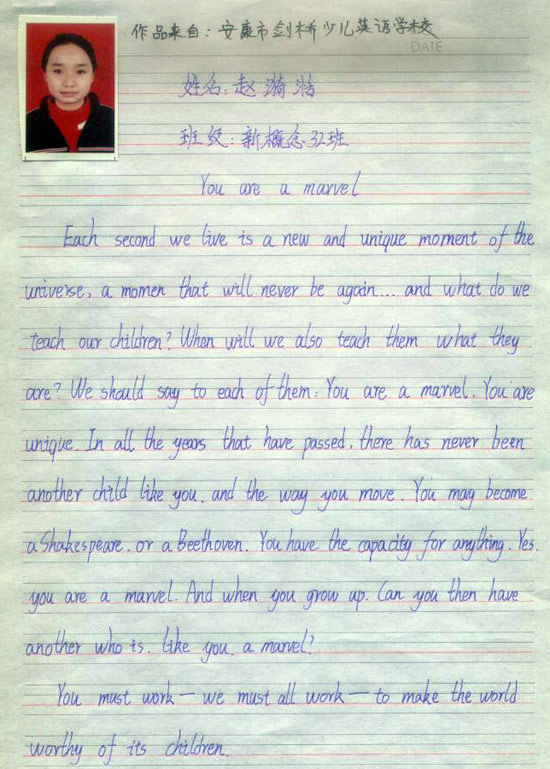 作品来自：安康市剑桥少儿英语学校
DATE
姓名：赵漪
班级：新概念32班
You are a marvel
Each second we live is a new and unique moment of the
universe, a momen that will never be again... and what do we
teach our children? When will we also teach them what they
are? We should say to each of them: You are a marvel. You are
unique. In all the years that have passed, there has never been
another child like you. and the way you move. You may become
a Shakespeare. or a Beethoven. You have the capacity for anything. Yes.
you are a marvel. And when you grow up. Can you then have
another who is. like you. a marvel?
You must work — we must all work — to make the world
worthy of its children.